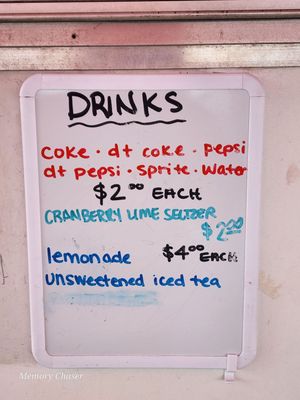 DRINKS
Coke · dt coke · pepsi
dt pepsi · sprite · water
$2.00 EACH
CRANBERRY LIME SELTZER
$2.00
lemonade $4.00 EACH
unsweetened iced tea
Memory Chaser